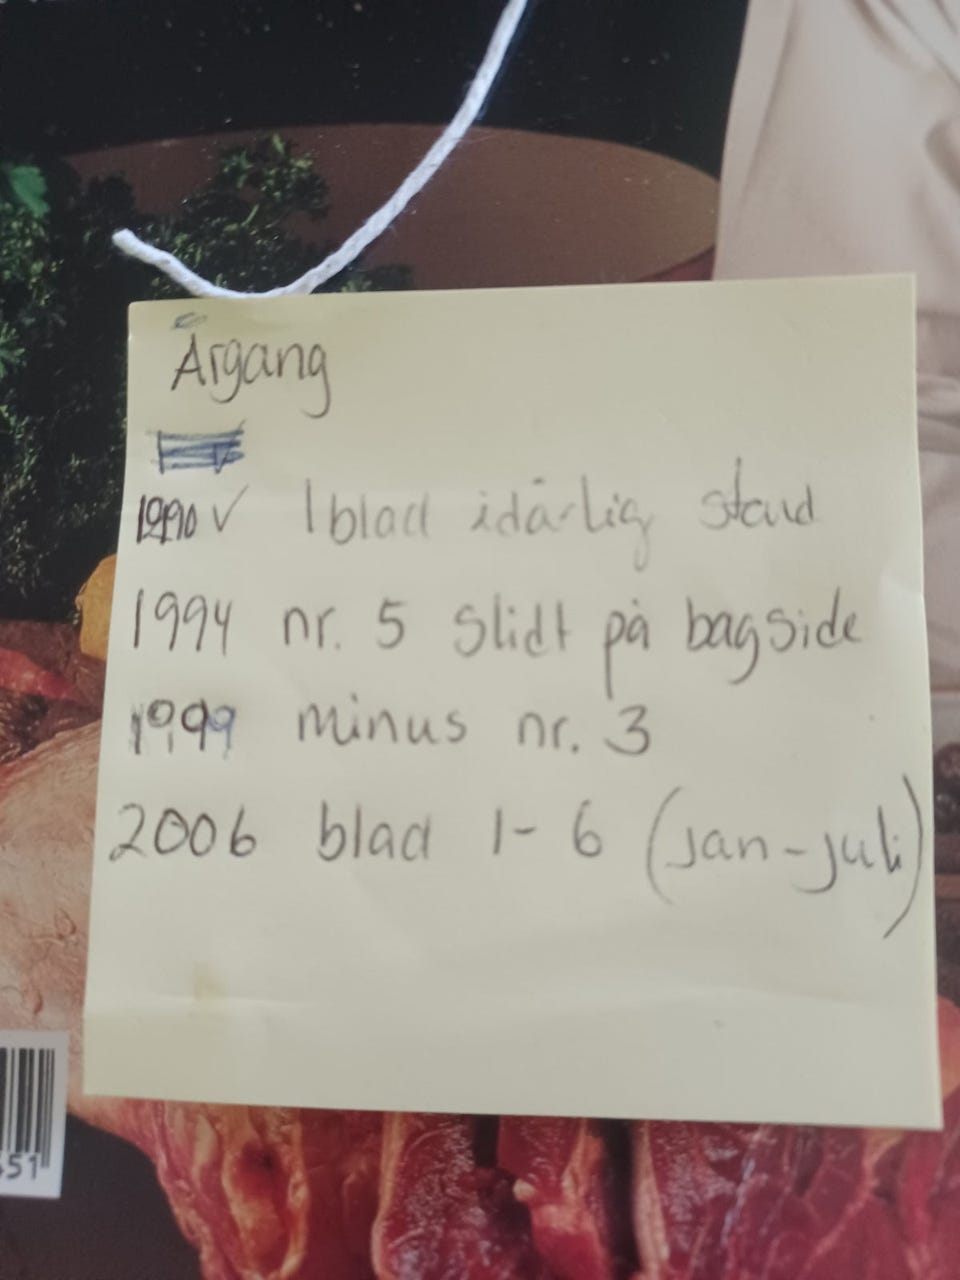 Årgang
1990 ✓ 1 blad i dårlig stand
1994 nr. 5 slidt på bagside
1999 minus nr. 3
2006 blad 1-6 (jan-juli)
51